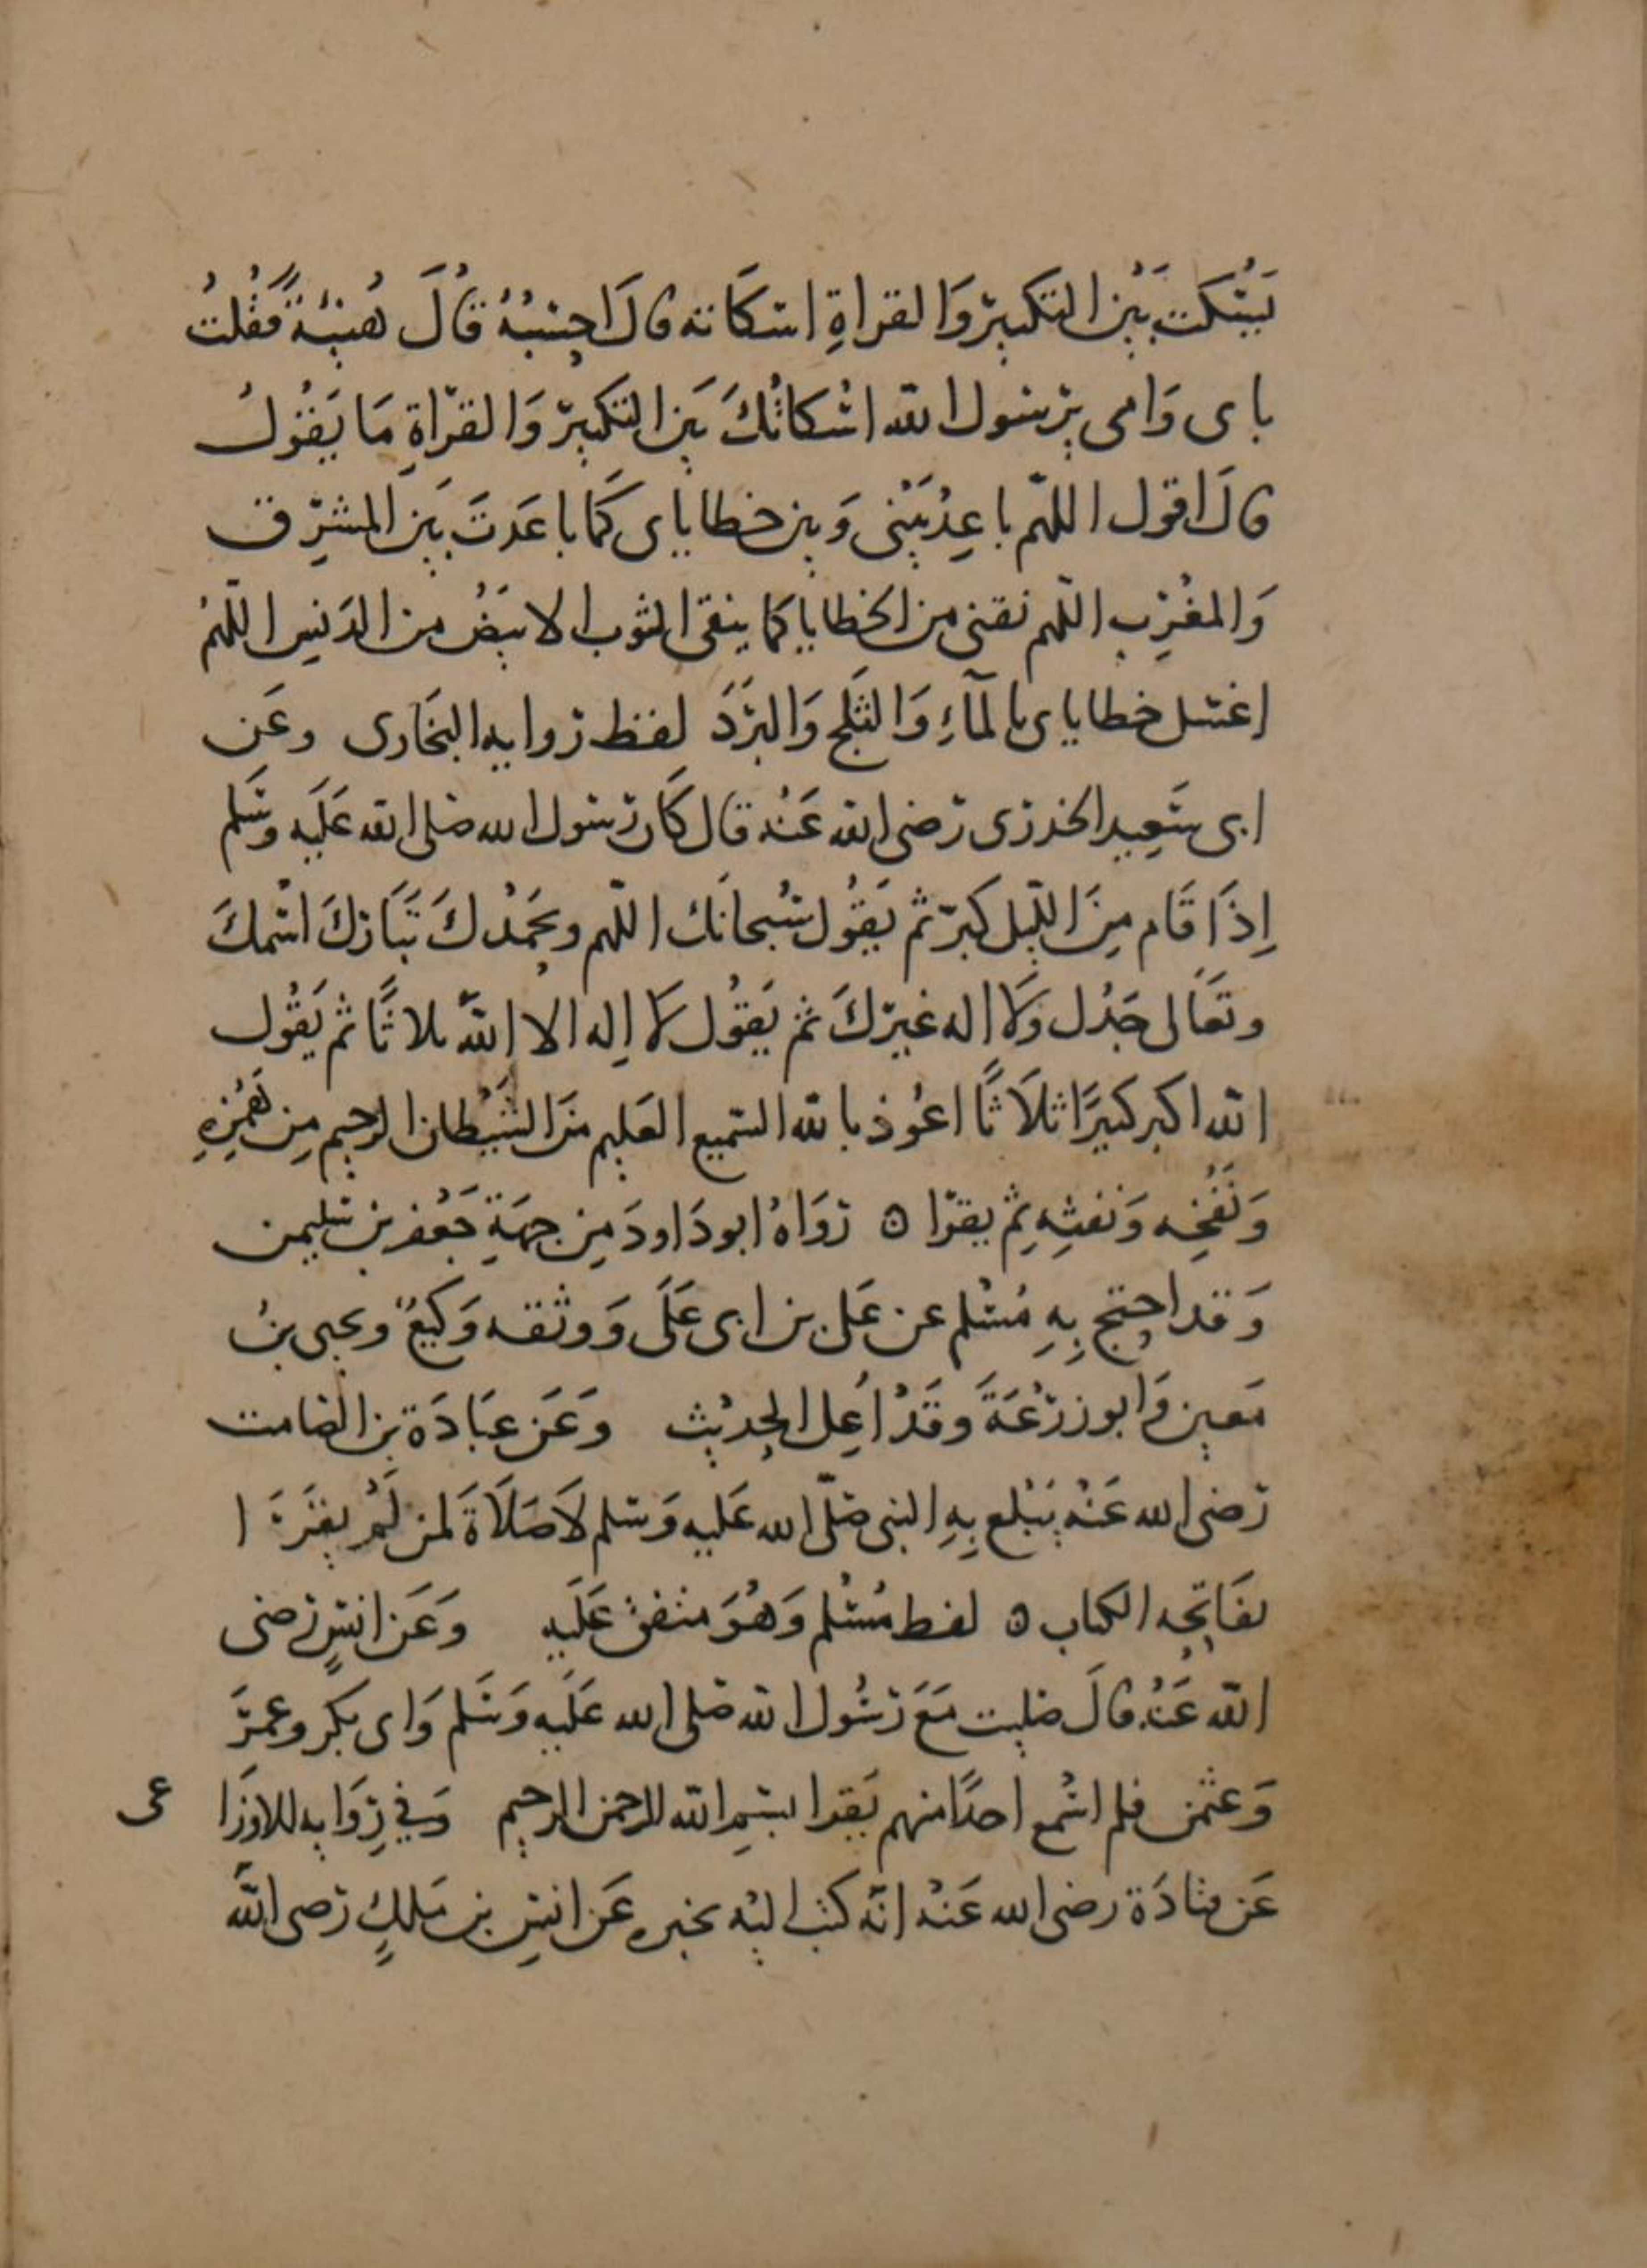 يَسْكت بَيْن التكبير وَالقراةِ اسكَاته قالَ احسبُهُ قَالَ هُنيْهَةً فَقُلتُ
بابى وَامى يرسول الله اسْكاتُكَ بَين التكبير وَالقرّاةِ مَا يَقُولُ
قالَ اقول اللهّم باعِدْ بَيْنى وَبين خطاياى كَما باعَدتَ بَين المشرِق
وَالمغْرِب اللّهم نقنى من الخطايا كما ينقى الثوب الابيَضُ من الدَنسِ اللّهمُ
اغسل خطاياى بالمآءِ وَالثَلج وَالبرَدَ لفظ روايه البخَارى وعَن
ابى سَعِيد الخدرى رَضى الله عَنْه قال كاَن رَسول الله صَلى الله عَلَيه وسَلم
اِذَا قَام مِنَ اللّيل كبرّ ثم يَقوُل سُبحانَك اللّهم وبحَمْدكَ تبَاركَ اسْمكَ
وتعَالى جَدُّك وَلا اله غيركَ ثم يَقوُل لا اِله الا اللهُ ثلاثًا ثم يَقوُل
الله اكبر كبيرًا ثلاَثًا اعُوذ بالله السّميع العَليم منَ الشَيْطان الرجيم مِن هَمْزِهِ
وَنَفْخِه وَنَفثِهِ ثمِ يقرَا ه رَوَاهُ ابو دَاودَ مِن جهَةِ جَعْفر بن سُليمن
وَقد احتج بِهِ مُسْلم عن عَلى بن ابى عَلَى وَوثقه وَكيعٌ ويحيى بنُ
مَعين وَابو زرْعَةَ وقَدْ اُعِل الحِديث وَعَن عبَادَة بن الصَامت
رَضى الله عَنْه يَبْلع بِهِ النبى صَلّى الله عَليه وَسَلم لاَ صَلاَةَ لمن لَمْ يقرَا
بفَاتِحِه الكتاب ه لفط مُسْلم وَهُوَ متفق عَلَيهِ وَعَن انسٍ رَضى
اللّه عَنهُ قالَ صَليت مَعَ رَسُول الله صَلى الله عَلَيه وَسَلم وَابى بكر وعمرَ
وَعثمن فلم اسْمع احدًا منهم يَقرا بسْمِ الله الرحمن الرحيم وَفي رِوَايه للاوزَا عى
عَن قتادَة رضى الله عَنهْ انّه كتب اليْه يخبره عَن انسِ بن مَلكٍ رَضى اللهُ